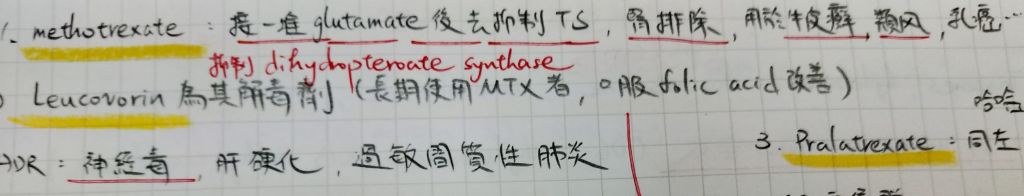 1. methotrexate : 接一堆 glutamate 後去抑制 TS, 腎排除, 用於牛皮癬, 類风, 乳癌…
抑制 dihydropteroate synthase
Leucovorin 為其解毒劑 (長期使用 MTX 者, 口服 folic acid 改善)
哈哈
→ADR : 神經毒, 肝硬化, 過敏間質性肺炎
3. Pralatrexate : 同左